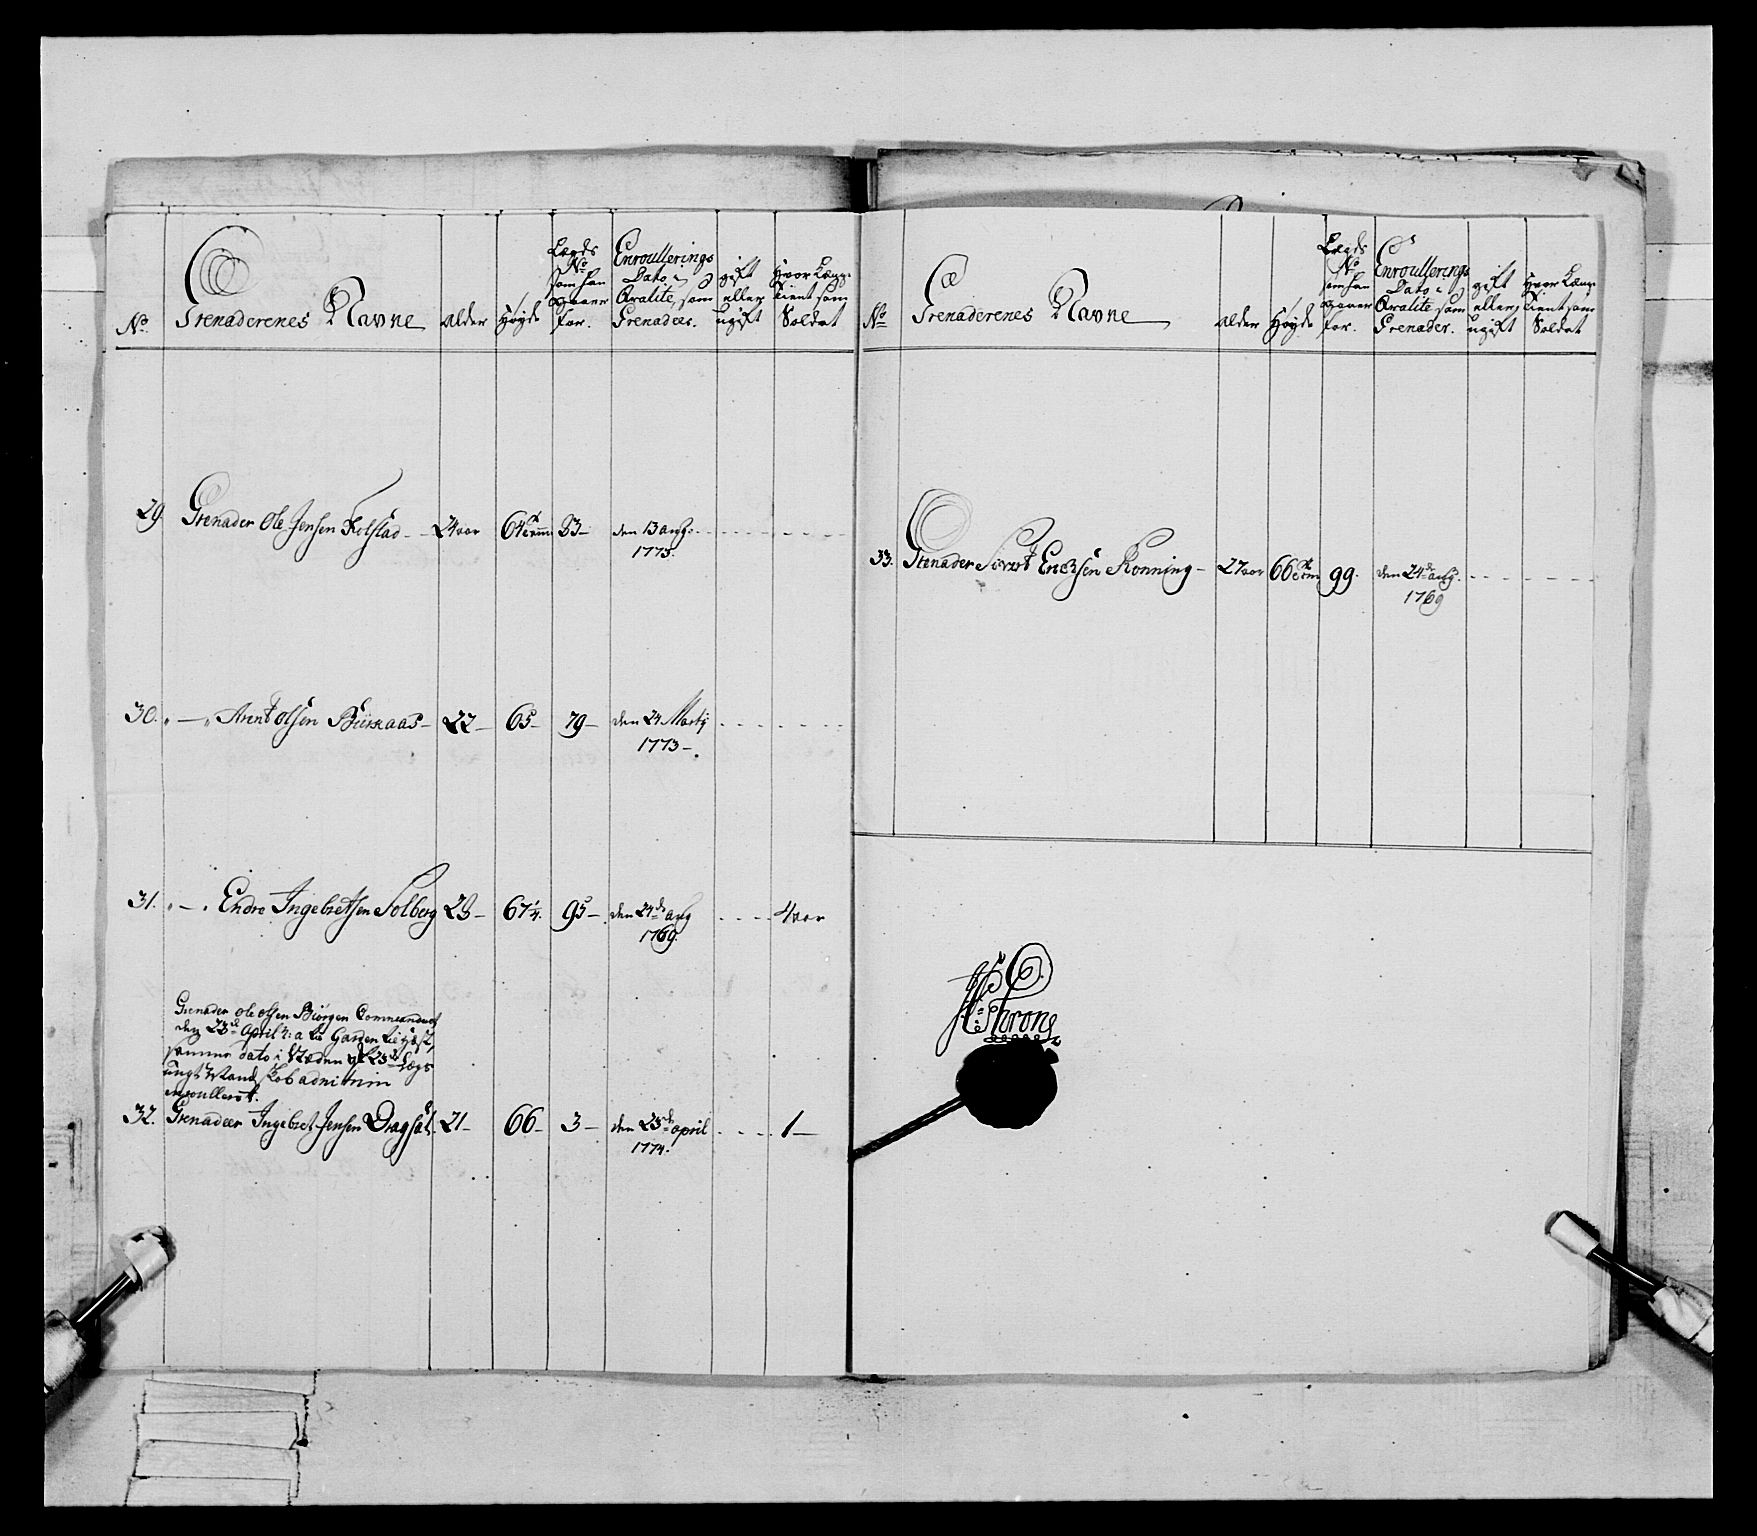 No.
Grenaderenes Navne
Alder
Høyde
Lægds
No
som han
staaer
for.
Enroullerings
Dato i
Qvalite som
Grenadeer.
gift
eller
ugift
Hvor Læng:
tient som
Soldat
29. Grenader Ole Jensen Kolstad - 24 aar 64 33 - den 13 aug:
1773.
30. " — " Arent Olsen - 22 - 65 - 79 - den 24 Martij
1773 -
31. " — " Endre Ingebretsen Solberg 28 - 67 1/4. 95 - den 24de aug 4 aar
1769.
Grenader Ole Olsen Biørgen Commenderet
den 23de April h: a til Garden
samme dato i Steden
enroulleret.
32. Grenadeer Ingebret Jensen 21 - 66 - 3 - den 23de april 1 —
1774.
No
Grenaderenes Navne
Alder
Høyde
Lægds
No
som han
staaer
for.
Enroullerings
Dato i
Qvalite som
Grenader.
gift
eller
ugift
Hvor Læng:
tient som
Soldat
33. Grenader Sivert Erichsen Rønning - 27 aar 66 99. den 24de aug.
1769